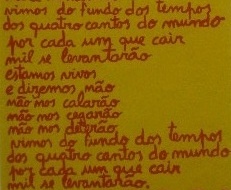 vimos do fundo dos tempos
dos quatro cantos do mundo
por cada um que cair
mil se levantarão
estamos vivos
e dizemos não
não nos calarão
não nos cegarão
não nos deterão
vimos do fundo dos tempos
dos quatro cantos do mundo
por cada um que cair
mil se levantarão.